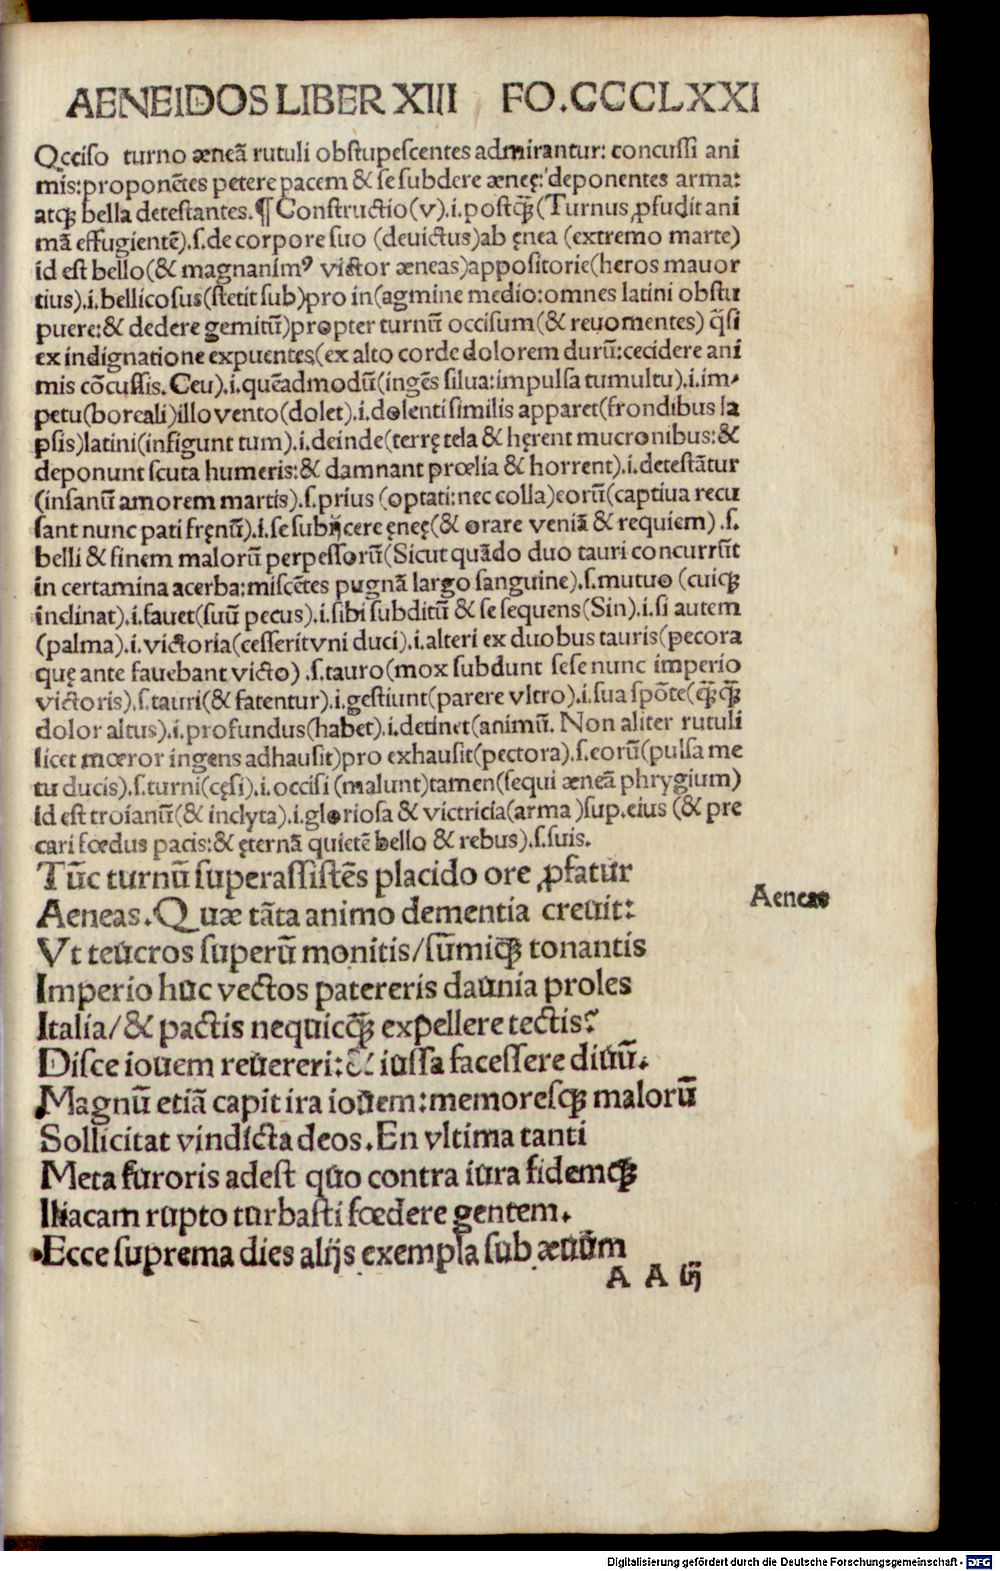 AENEIDOS LIBER XIII FO.CCCCLXXI
Occiso turno æneã rutuli obstupescentes admirantur: concussi ani
mis:proponẽtes petere pacem & se subdere æneę: deponentes arma:
atqꝫ bella detestantes.¶ Constructio(v).i.postq̃ꝫ(Turnus ꝓfudit ani
mã effugientẽ).s.de corpore suo (deuictus)ab ęnea (extremo marte)
id est bello(& magnanimꝰ victor æneas)appositorie(heros mauor
tius).i.bellicosus(stetit sub)pro in(agmine medio:omnes latini obstu
puere:& dedere gemitũ)propter turnũ occisum(& reuomentes) q̃si
ex indignatione expuentes(ex alto corde dolorem durũ:cecidere ani
mis cõcussis. Ceu).i.quẽadmodũ(ingẽs silua:impulsa tumultu).i.im-
petu(boreali)illo vento(dolet).i.dolenti similis apparet(frondibus la
psis)latini(infigunt tum).i.deinde(terrę tela & hęrent mucronibus:&
deponunt scuta humeris:& damnant prœlia & horrent).i.detestãtur
(insanũ amorem martis).s.prius (optati:nec colla)eorũ(captiua recu
sant nunc pati fręnũ).i.se subijcere ęneę(& orare veniã & requiem) .s.
belli & finem malorũ perpessorũ(Sicut quãdo duo tauri concurrũt
in certamina acerba:miscẽtes pugnã largo sanguine).s.mutuo (cuiqꝫ
inclinat).i.fauet(suũ pecus).i.sibi subditũ & se sequens(Sin).i.si autem
(palma).i.victoria(cesserit vni duci).i.alteri ex duobus tauris(pecora
quę ante fauebant victo) .s.tauro(mox subdunt sese nunc imperio
victoris).s.tauri(& fatentur).i.gestiunt(parere vltro).i.sua spõte(q̃ꝫq̃ꝫ
dolor altus).i.profundus(habet).i.detinet(animũ. Non aliter rutuli
licet mœror ingens adhausit)pro exhausit(pectora).s.eorũ(pulsa me
tu ducis).s.turni(cęsi).i.occisi (malunt)tamen(sequi æneã phrygium)
id est troianũ(& inclyta).i.gloriosa & victricia(arma )sup.eius (& pre
cari fœdus pacis:& ęternã quietẽ bello & rebus).s.suis.
Tũc turnũ superassistẽs placido ore ꝓfatur
Aeneas.Quæ tãta animo dementia creuit:
Vt teucros superũ monitis/sũmiqꝫ tonantis
Imperio huc vectos patereris daunia proles
Italia/& pactis nequicq̃ꝫ expellere tectis?
Disce iouem reuereri:& iussa facessere diuũ.
Magnũ etiã capit ira iouem:memoresqꝫ malorũ
Sollicitat vindicta deos.En vltima tanti
Meta furoris adest quo contra iura fidemqꝫ
Iliacam rupto turbasti fœdere gentem.
Ecce suprema dies alijs exempla sub æuũm
Aeneas
A A iij
Digitalisierung gefördert durch die Deutsche Forschungsgemeinschaft - DFG